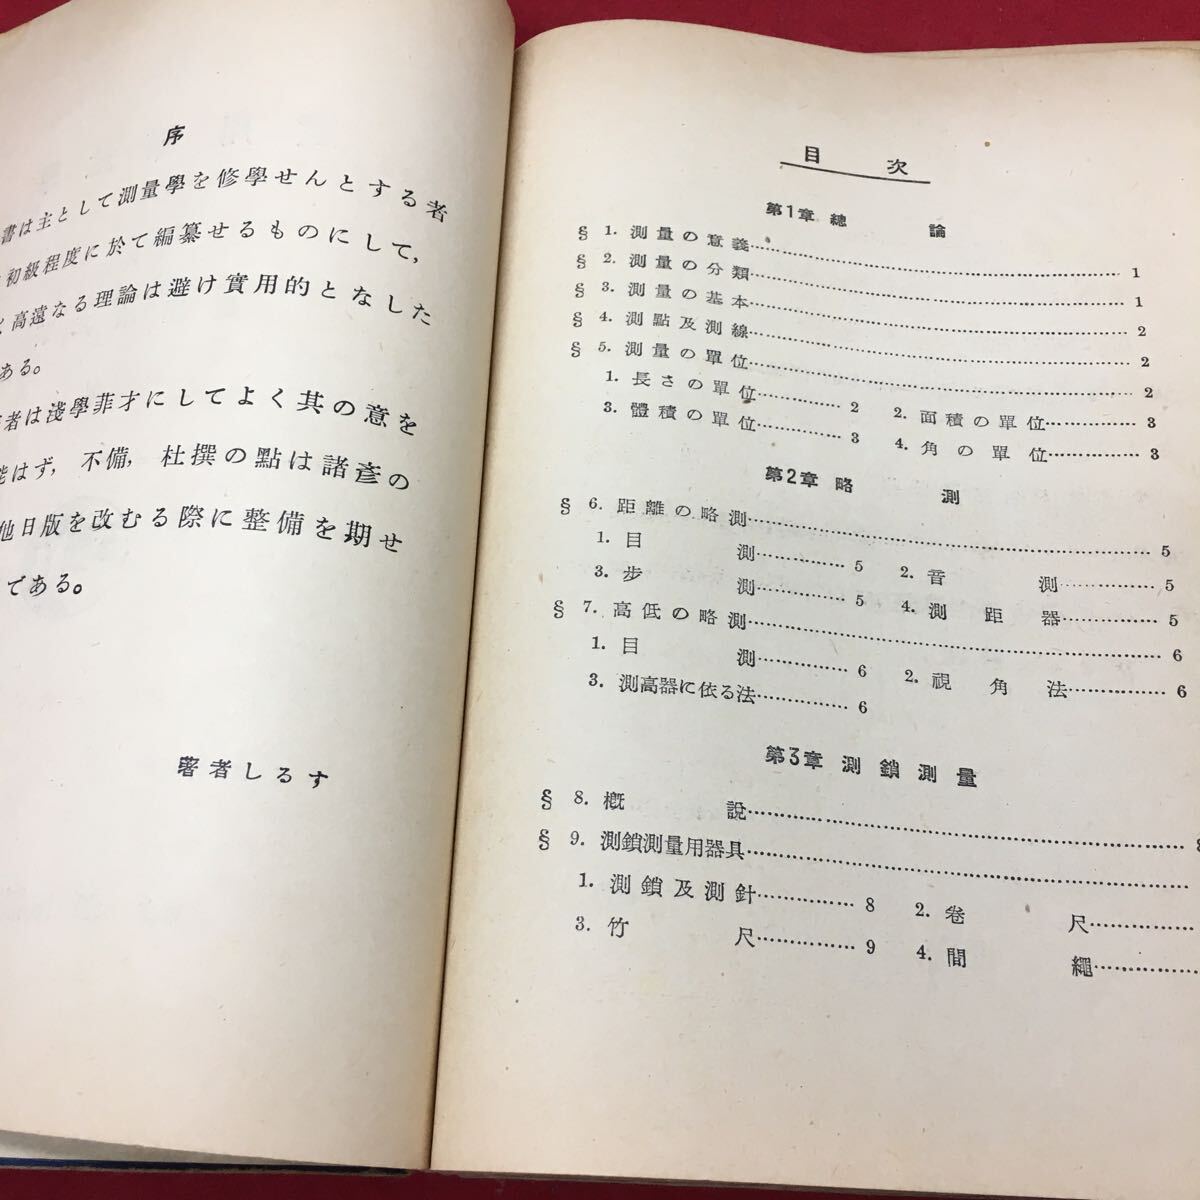 序
書は主として測量學を修學せんとする者
初級程度に於て編纂せるものにして,
高遠なる理論は避け實用的となした
ある。
者は淺學菲才にしてよく其の意を
能はず, 不備, 杜撰の點は諸彥の
他日版を改むる際に整備を期せ
である。
著者しるす
目次
第1章 總論
§ 1. 測量の意義 1
§ 2. 測量の分類 1
§ 3. 測量の基本 2
§ 4. 測點及測線 2
§ 5. 測量の單位 2
1. 長さの單位 2 2. 面積の單位 3
3. 體積の單位 3 4. 角の單位 3
第2章 略測
§ 6. 距離の略測 5
1. 目測 5 2. 音測 5
3. 步測 5 4. 測距器 5
§ 7. 高低の略測 6
1. 目測 6 2. 視角法 6
3. 測高器に依る法 6
第3章 測鎖測量
§ 8. 槪說 8
§ 9. 測鎖測量用器具
1. 測鎖及測針 8 2. 卷尺
3. 竹尺 9 4. 間繩